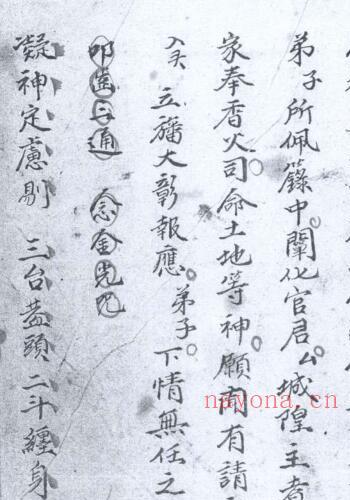 弟子所佩籙中闡化官君厶城隍主者
家奉香火司命土地等神願聞有請
立旛大彰報應弟子下情無任之
叩齒三通 念金光咒
凝神定慮剔 三台蓋頭二斗纏身
nayona.cn